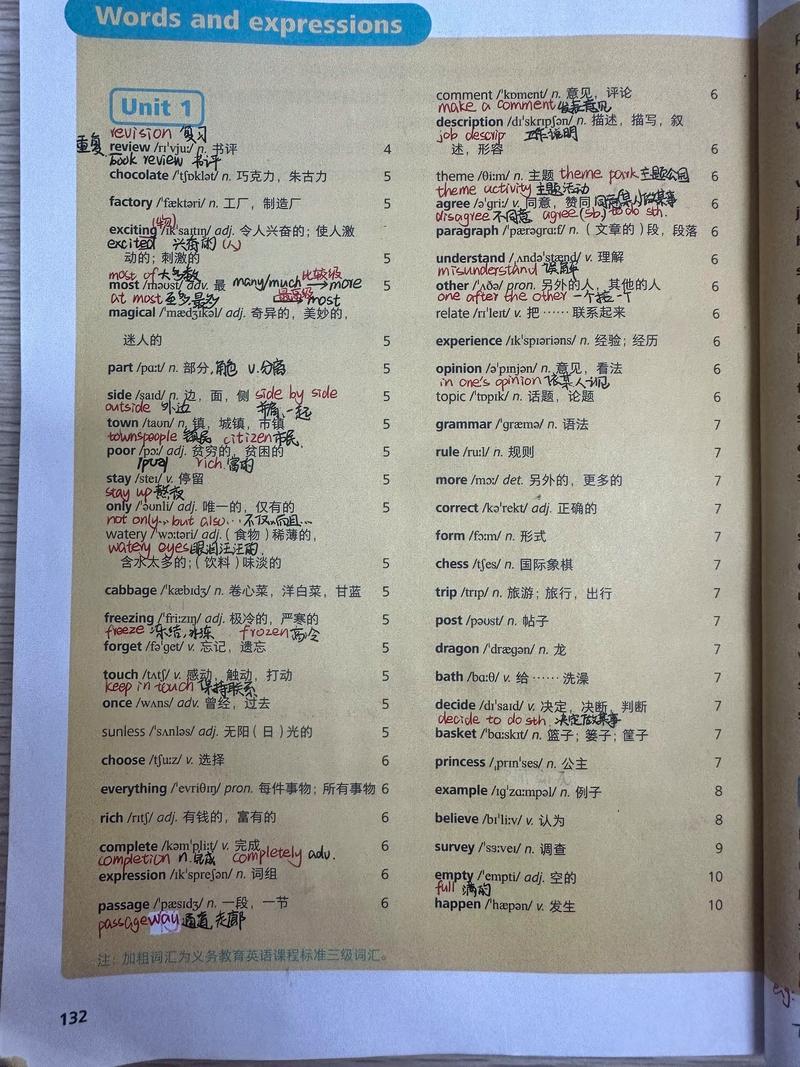 Words and expressions
Unit 1
revision 复习
重复
review /rɪˈvjuː/ n. 书评 4
book review 书评
chocolate /ˈtʃɒklət/ n. 巧克力，朱古力 5
factory /ˈfæktəri/ n. 工厂，制造厂 5
(物)
exciting /ɪkˈsaɪtɪŋ/ adj. 令人兴奋的；使人激
excited 兴奋的 (人)
动的；刺激的 5
most of 大多数
most /məʊst/ adv. 最 many/much 比较级 → more 5
at most 至多最多 最高级 → most
magical /ˈmædʒɪkəl/ adj. 奇异的，美妙的，
迷人的 5
part /pɑːt/ n. 部分, 角色 v. 分离 5
side /saɪd/ n. 边，面，侧 side by side 5
outside 外边 并肩,一起
town /taʊn/ n. 镇，城镇，市镇 5
townspeople 镇民 citizen 市民
poor /pɔː/ adj. 贫穷的，贫困的 5
rich 富的
stay /steɪ/ v. 停留 5
stay up 熬夜
only /ˈəʊnli/ adj. 唯一的，仅有的 5
not only... but also... 不仅...而且...
watery /ˈwɔːtəri/ adj.（食物）稀薄的，
watery eyes 眼泪汪汪的
含水太多的；（饮料）味淡的 5
cabbage /ˈkæbɪdʒ/ n. 卷心菜，洋白菜，甘蓝 5
freezing /ˈfriːzɪŋ/ adj. 极冷的，严寒的 5
freeze 冻结,冰冻 frozen 高冷
forget /fəˈget/ v. 忘记，遗忘 5
touch /tʌtʃ/ v. 感动，触动，打动 5
keep in touch 保持联系
once /wʌns/ adv. 曾经，过去 5
sunless /ˈsʌnləs/ adj. 无阳（日）光的 5
choose /tʃuːz/ v. 选择 6
everything /ˈevriθɪŋ/ pron. 每件事物；所有事物 6
rich /rɪtʃ/ adj. 有钱的，富有的 6
complete /kəmˈpliːt/ v. 完成 6
completion n. 完成 completely adv.
expression /ɪkˈspreʃən/ n. 词组 6
passage /ˈpæsɪdʒ/ n. 一段，一节 6
passageway 通道,走廊
注：加粗词汇为义务教育英语课程标准三级词汇。
132
comment /ˈkɒment/ n. 意见，评论 6
make a comment 发表意见
description /dɪˈskrɪpʃən/ n. 描述，描写，叙
job descrip 工作说明
述，形容 6
theme /θiːm/ n. 主题 theme park 主题公园 6
theme activity 主题活动
agree /əˈɡriː/ v. 同意，赞同 同意某人做某事 6
disagree 不同意 agree (sb.) to do sth.
paragraph /ˈpærəɡrɑːf/ n.（文章的）段，段落 6
understand /ˌʌndəˈstænd/ v. 理解 6
misunderstand 误解
other /ˈʌðə/ pron. 另外的人，其他的人 6
one after the other 一个接一个
relate /rɪˈleɪt/ v. 把……联系起来 6
experience /ɪkˈspɪəriəns/ n. 经验；经历 6
opinion /əˈpɪnjən/ n. 意见，看法 6
in one's opinion 依某人认为
topic /ˈtɒpɪk/ n. 话题，论题 6
grammar /ˈɡræmə/ n. 语法 7
rule /ruːl/ n. 规则 7
more /mɔː/ det. 另外的，更多的 7
correct /kəˈrekt/ adj. 正确的 7
form /fɔːm/ n. 形式 7
chess /tʃes/ n. 国际象棋 7
trip /trɪp/ n. 旅游；旅行，出行 7
post /pəʊst/ n. 帖子 7
dragon /ˈdræɡən/ n. 龙 7
bath /bɑːθ/ v. 给……洗澡 7
decide /dɪˈsaɪd/ v. 决定，决断，判断 7
decide to do sth. 决定做某事
basket /ˈbɑːskɪt/ n. 篮子；篓子；筐子 7
princess /ˌprɪnˈses/ n. 公主 7
example /ɪɡˈzɑːmpəl/ n. 例子 8
believe /bɪˈliːv/ v. 认为 8
survey /ˈsɜːveɪ/ n. 调查 9
empty /ˈempti/ adj. 空的 10
full 满的
happen /ˈhæpən/ v. 发生 10